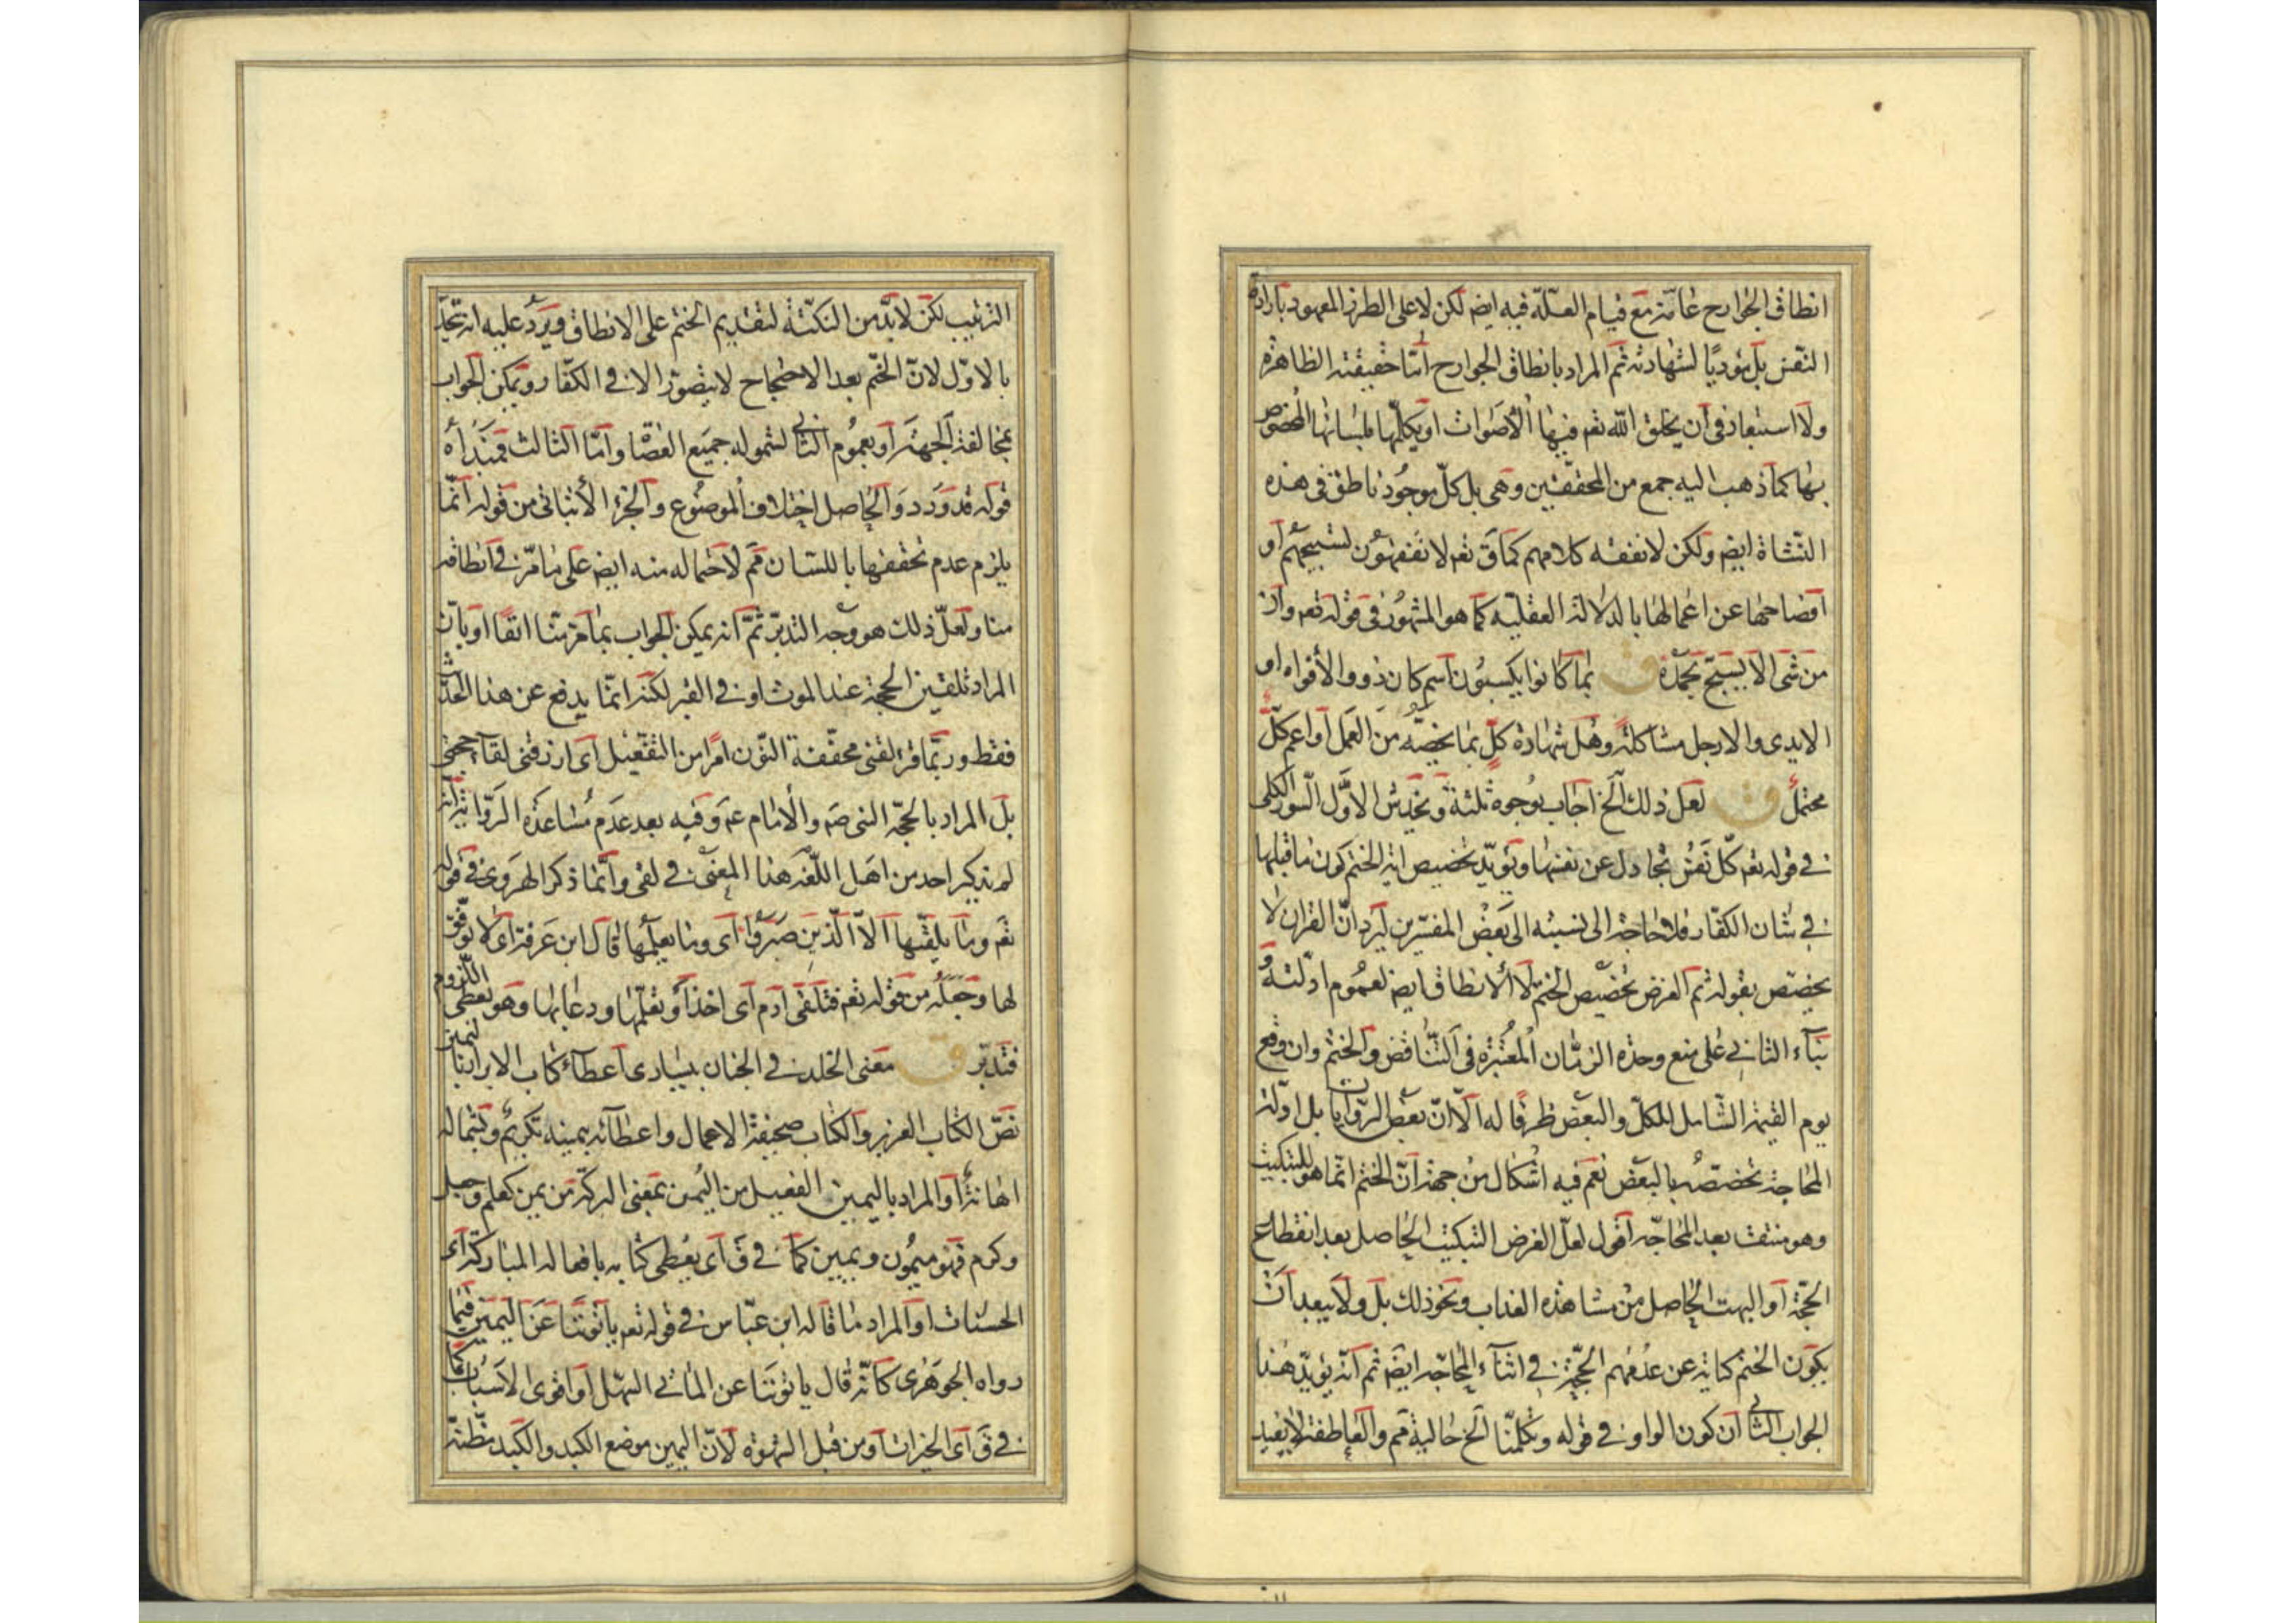 انطاق الجوارح عامّة مع قيام العلّة فيه ايض لكن لا على الطرز المعهود بارادة
النّفس بل مؤديًا لشهادته ثم المراد بانطاق الجوارح امّا حقيقته الظاهرة
ولا استبعاد فى ان يخلق الله تعه فيها الأصوات او يكلّمها بلسانها المخصوص
بها كما ذهب اليه جمع من المحققين وهى بل كلّ موجود ناطق فى هذه
النّشاة ايض ولكن لا نفقه كلامهم كما ق تعه لا تفقهون تسبيحهم او
افصاحها عن اعمالها بالدلالة العقليّه كما هو المشهور فى قوله تعه وان
من شى الا يسبّح بحمده ق بما كانوا يكسبون اسم كان ذوو الأفواه او
الايدى والارجل مشاكلة وهل شهادة كلّ بما يخصّه من العمل او اعم كلّ
محتمل ق لعل ذلك الخ اجاب بوجوه ثلثة ويخدش الاوّل السّور الكلى
فى قوله تعه كلّ نفس تجادل عن نفسها ويؤيّد تخصيص اية الختم كون ما قبلها
فى شان الكفّار فلا حاجة الى نسبته الى بعض المفسّرين ليرد انّ القران لا
يخصّص بقوله ثم الغرض تخصيص الختم لا الانطاق ايض لعموم ادلّته و
بناء الثانى على منع وحدة الزمان المعتبرة فى التّناقض والختم وان وقع
يوم القيمة الشّامل للكلّ والبعض ظرفا له الّا انّ بعض الرّوايات بل ادلّة
المحاجة تخصّصه بالبعض نعم فيه اشكال من جهة انّ الختم انّما هو للتبكيت
وهو منتف بعد المحاجّه اقول لعلّ الغرض التبكيت الحاصل بعد انقطاع
الحجّة او البهت الحاصل من مشاهدة العذاب ونحو ذلك بل ولا يبعد ان
يكون الختم كناية عن عدمهم الحجّة فى اثناء المحاجّه ايض ثم انّه يؤيّد هذا
الجواب الثانى ان كون الواو فى قوله وتكلّمنا الخ حالية مم والعاطفة لا يفيد
الترتيب لكن لا بدّ من النكتة لتقديم الختم على الانطاق ويرد عليه انه يتّحد
بالاوّل لانّ الختم بعد الاحتجاج لا يتصوّر الا فى الكفّار ويمكن الجواب
بمخالفة الجهة او بعموم الثانى لشموله جميع العصاة وامّا الثالث فمبدأه
قوله قد ورد والحاصل اختلاف الموضوع والجزء الأثباتى من قوله انّما
يلزم عدم تحققها باللسان مم لاحتماله منه ايض على ما مرّ فى انطاقه
منا ولعلّ ذلك هو وجه التدبّر ثمّ انه يمكن الجواب بما مرّ منّا انفًا او بانّ
المراد تلقين الحجّة عند الموت او فى القبر لكنه انّما يدفع عن هذا الحديث
فقط وربّما قرء لقنى مخفّفة النّون امرًا من التفعيل اى ارزقنى لقاء حجتى
بل المراد بالحجّة النبى صم والأمام عم وفيه بعد عدم مساعدة الرّواية انه
لم يذكر احد من اهل اللّغه هذا المعنى فى لقى وانّما ذكر الهروى فى قوله
تعه وما يلقّيها الّا الّذين صبروا اى وما يعلّمها قال ابن عرفة اى لا يوفّق
لها وجعله من قوله تعه فتلقّى ادم اى اخذ او تعلّمها ودعا بها وهو يعطى اللزوم
فتدبّر ق معنى الخلد فى الجنان بيسارى اعطاء كتاب الابرار باليمين
نصّ الكتاب العزيز والكتاب صحيفة الاعمال واعطائه بيمينه تكريم وبشماله
اهانة او المراد باليمين الفعيل من اليمن بمعنى البركة من يمن كعلم وجعل
وكرم فهو ميمون ويمين كما فى ق اى يعطى كتابه بافعاله المباركة اى
الحسنات او المراد ما قاله ابن عبّاس فى قوله تعه يأتوننا عن اليمين فيما
رواه الجوهرى كانّه قال ياتوننا عن المأتى السّهل او اقوى الاسباب كما
فى ق اى الخيرات او من قبل الشهوة لانّ اليمين موضع الكبد والكبد مظنّة